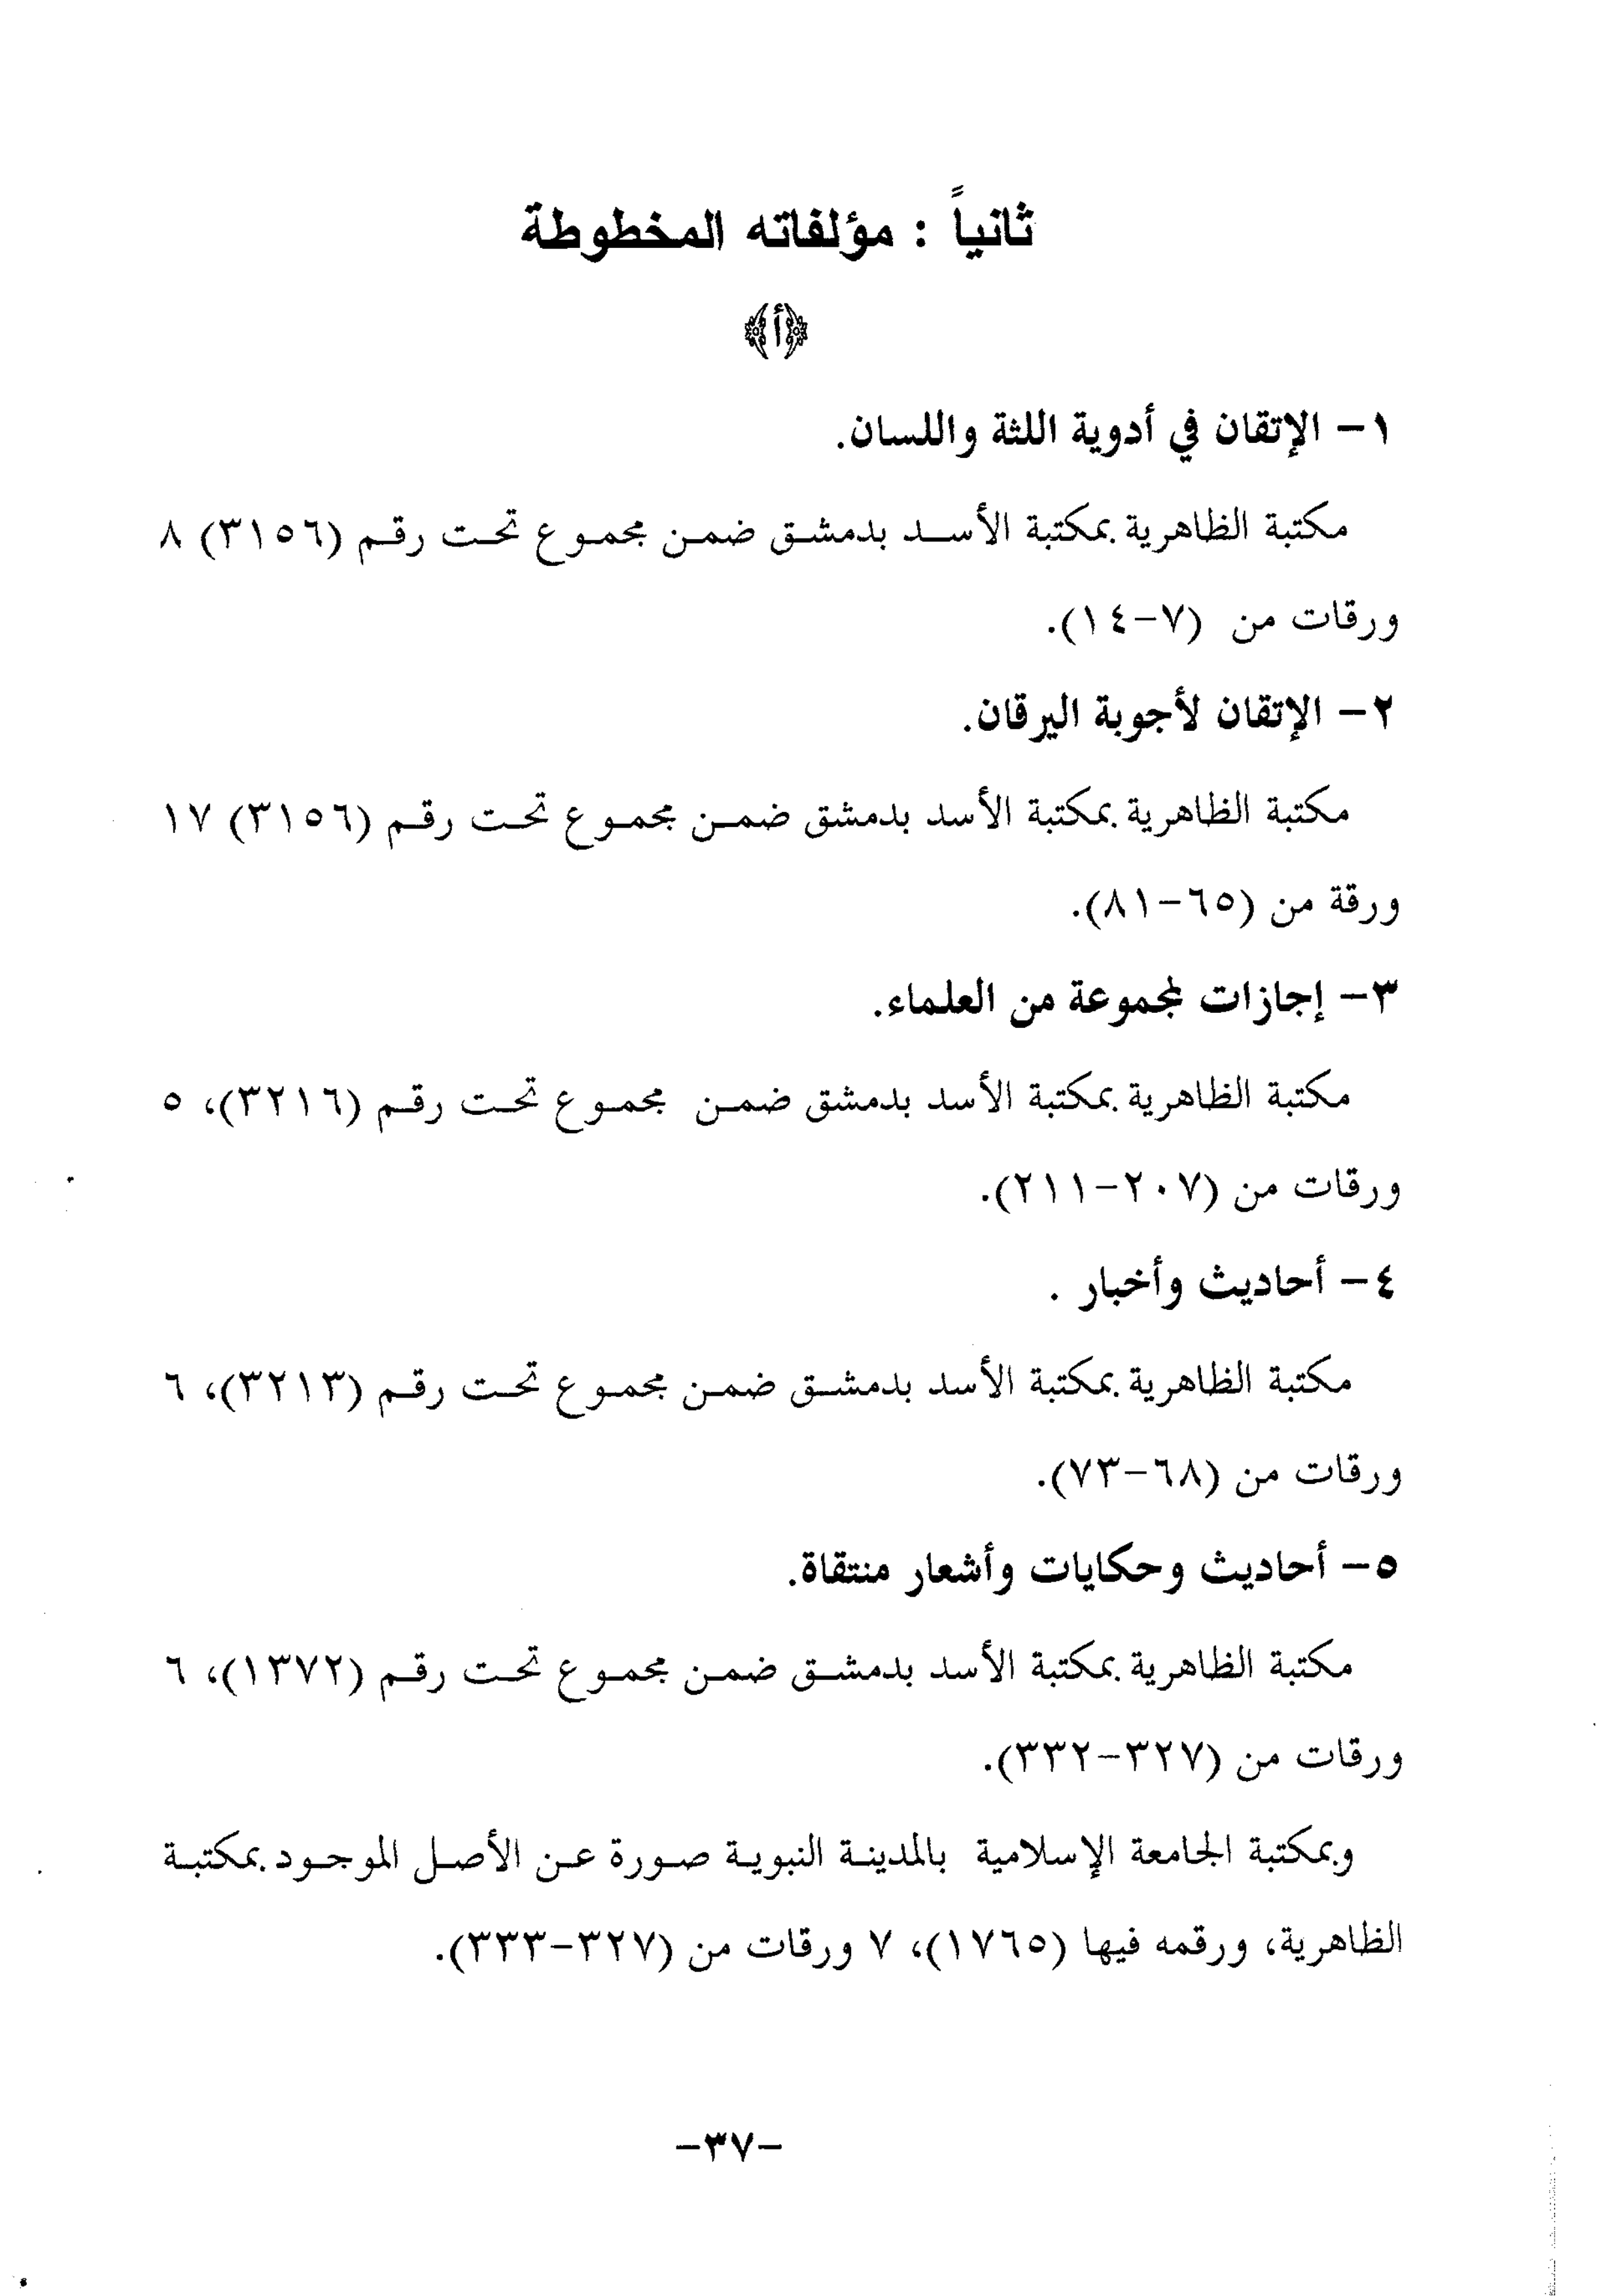 ثانياً : مؤلفاته المخطوطة
﴿أ﴾
١- الإتقان في أدوية اللثة واللسان.
مكتبة الظاهرية بمكتبة الأسد بدمشق ضمن مجموع تحت رقم (٣١٥٦) ٨
ورقات من (٧-١٤).
٢- الإتقان لأجوبة اليرقان.
مكتبة الظاهرية بمكتبة الأسد بدمشق ضمن مجموع تحت رقم (٣١٥٦) ١٧
ورقة من (٦٥-٨١).
٣- إجازات لمجموعة من العلماء.
مكتبة الظاهرية بمكتبة الأسد بدمشق ضمن مجموع تحت رقم (٣٢١٦)، ٥
ورقات من (٢٠٧-٢١١).
٤- أحاديث وأخبار .
مكتبة الظاهرية بمكتبة الأسد بدمشق ضمن مجموع تحت رقم (٣٢١٣)، ٦
ورقات من (٦٨-٧٣).
٥- أحاديث وحكايات وأشعار منتقاة.
مكتبة الظاهرية بمكتبة الأسد بدمشق ضمن مجموع تحت رقم (١٣٧٢)، ٦
ورقات من (٣٢٧-٣٣٢).
وبمكتبة الجامعة الإسلامية بالمدينة النبوية صورة عن الأصل الموجود بمكتبة
الظاهرية، ورقمه فيها (١٧٦٥)، ٧ ورقات من (٣٢٧-٣٣٣).
-٣٧-